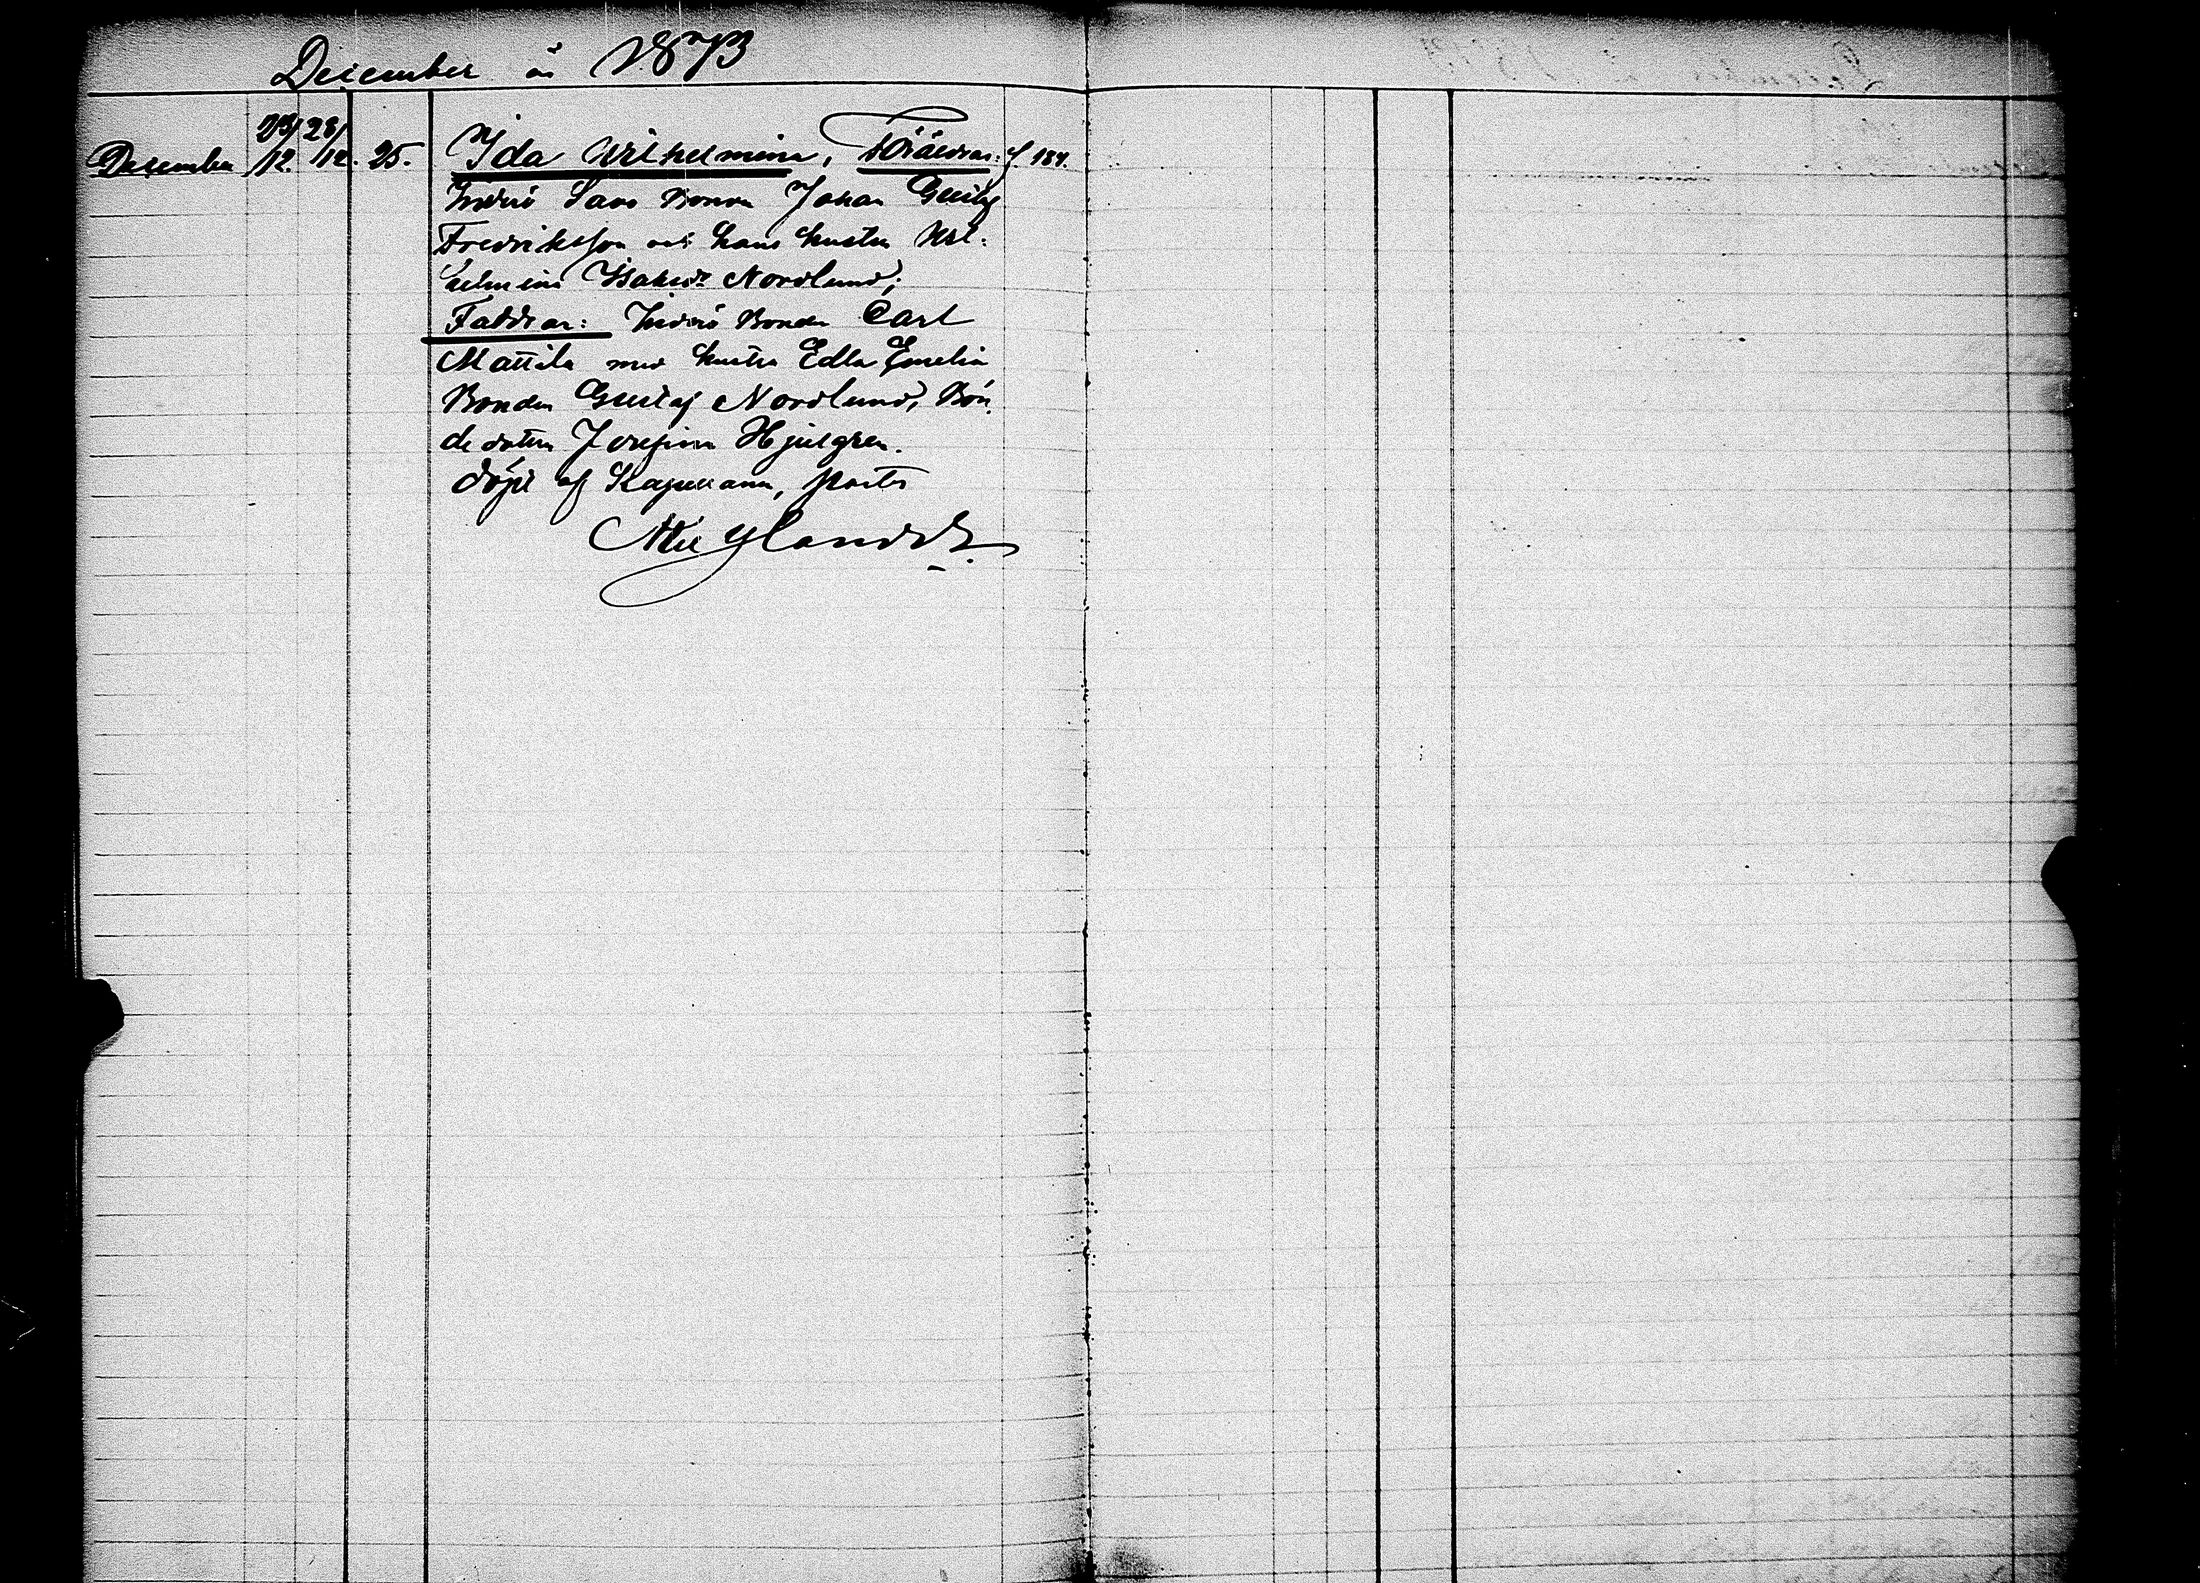 December år 1873
December 23/12. 28/12. 25. Ida Wilhelmina, Föräldrar: f. 184.
Inderö Savo Bonden Johan Gustaf
Fredriksson och hans hustru Wil-
helmina Isaksdr Nordlund;
Faddrar: Inderö Bonden Carl
Mattila med hustru Edla Emelia
Bonden Gustaf Nordlund, Bon-
de dottern Josefina Hjulgren.
döpt af Kapellanen, pastor
Nylander.